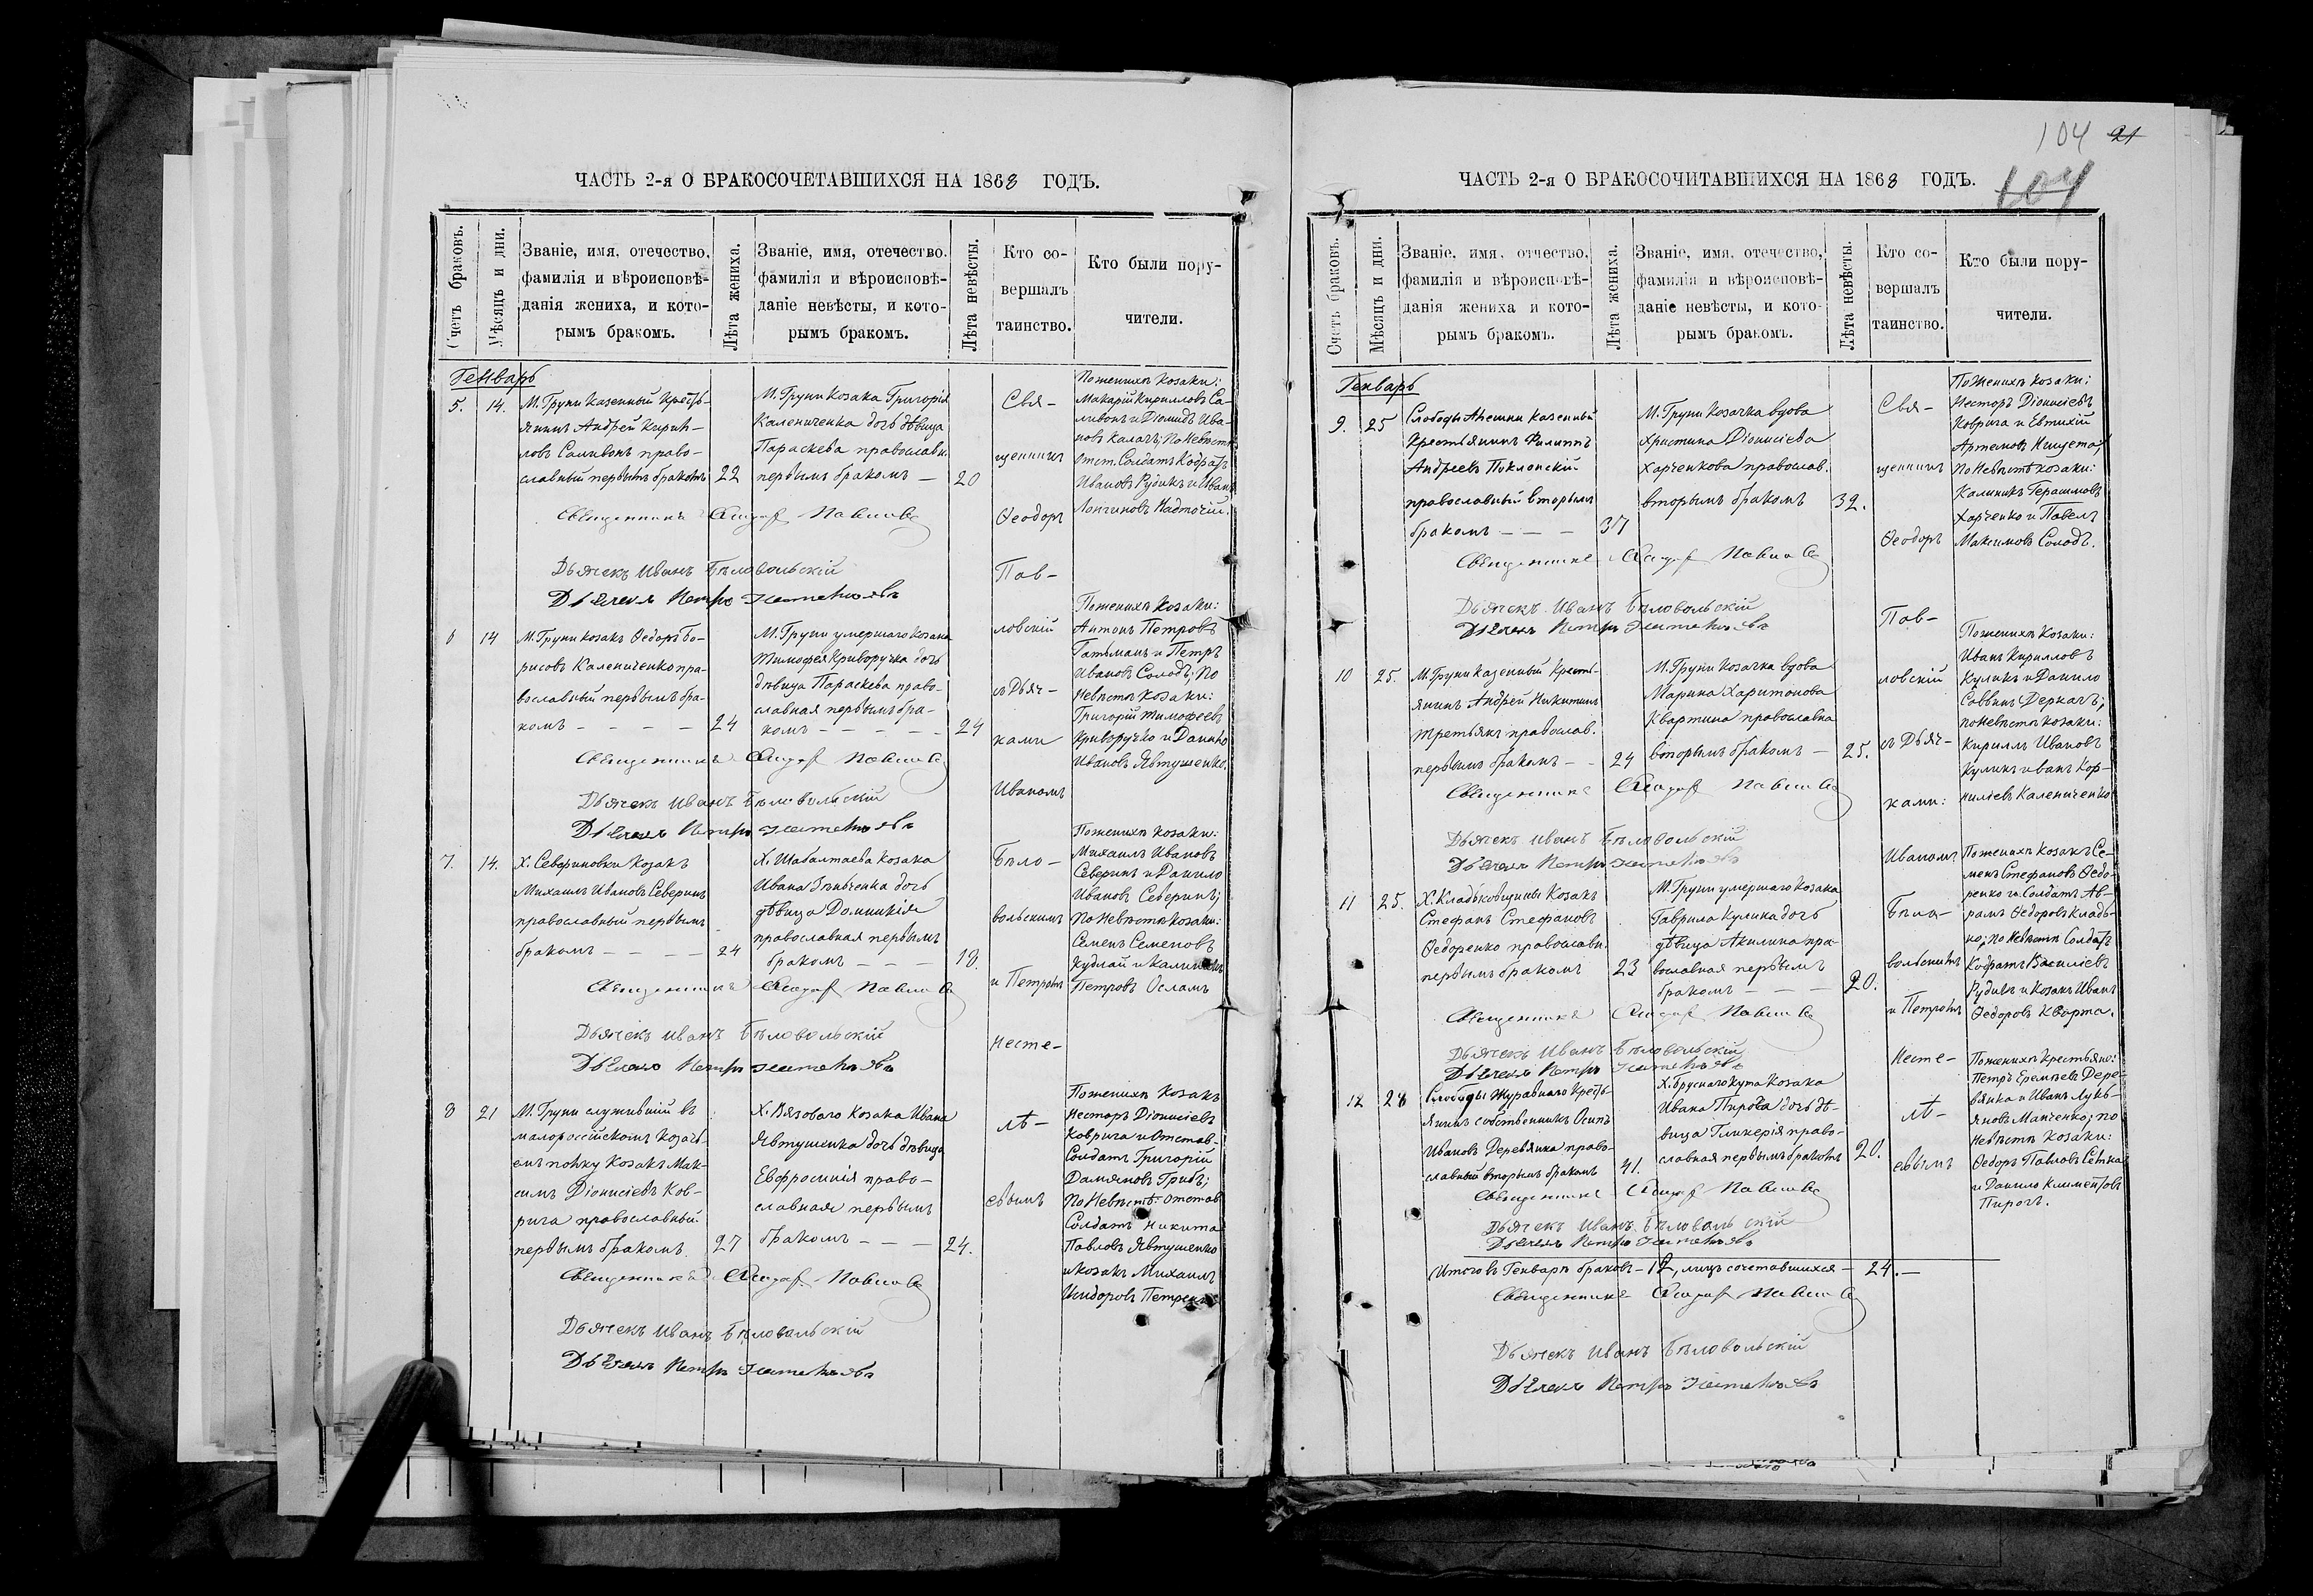 ЧАСТЬ 2-я О БРАКОСОЧЕТАВШИХСЯ НА 1868 ГОДЪ.
Счетъ браковъ.
Мѣсяцъ и дни.
Званіе, имя, отечество,
фамилія и вѣроисповѣ-
данія жениха, и кото-
рымъ бракомъ.
Лѣта жениха.
Званіе, имя, отечество.
фамилія и вѣроисповѣ-
даніе невѣсты, и кото-
рымъ бракомъ.
Лѣта невѣсты.
Кто со-
вершалъ
таинство.
Кто были пору-
чители.
Генварь
5.
14.
М. Груни казенный Кресть-
янинъ Андрей Кирил-
ловъ Саливонъ право-
славный первымъ бракомъ
22
М. Груни Козака Григорія
Калениченка дочь дѣвица
Параскева православн.
первымъ бракомъ —
20
По женихѣ козаки:
Макарій Кирилловъ Са-
ливонъ и Діомидъ Ива-
новъ Калачъ; По Невѣстѣ
Отст. Солдатъ Кодратъ
Ивановъ Рудикъ и Иванъ
Лонгиновъ Надточій.
Священникъ Павловс
Дьячекъ Иванъ Бѣловольскій
Дьячекъ Петръ
6
14
М. Груни козакъ Ѳедоръ Бо-
рисовъ Калениченко пра-
вославный первымъ бра-
комъ — — — —
24
М. Груни умершаго Козака
Тимофея Криворучка дочь
дѣвица Параскева право-
славная первымъ бра-
комъ — — — — —
24
По женихѣ Козаки:
Антонъ Петровъ
Гатьманъ и Петръ
Ивановъ Солодъ; По
Невѣстѣ козаки:
Григорій Тимофеевъ
Криворучко и Данило
Ивановъ Явтушенко.
Священникъ Павловс
Дьячекъ Иванъ Бѣловольскій
Дьячекъ Петръ
7.
14.
Х. Севериновки Козакъ
Михаилъ Ивановъ Северинъ
православный первымъ
бракомъ — — — —
24
Х. Шабалтаева Козака
Ивана Зѣньченка дочь
дѣвица Домникія
православная первымъ
бракомъ — — —
18.
По женихѣ козаки:
Михаилъ Ивановъ
Северинъ и Данило
Ивановъ Северинъ;
По Невѣстѣ козаки:
Семенъ Семеновъ
Кудлай и Калиникъ
Петровъ Осламъ
Священникъ Павловс
Дьячекъ Иванъ Бѣловольскій
Дьячекъ Петръ
8
21
М. Груни служившій въ
малороссійскомъ Козачь-
емъ полку Козакъ Мак-
симъ Діонисіевъ Ков-
рига православный
первымъ бракомъ.
27
Х. Вязоваго Козака Ивана
Явтушенка дочь дѣвица
Евфросинія право-
славная первымъ
бракомъ — — —
24.
По женихѣ Козакъ
Несторъ Діонисіевъ
Коврига и Отстав.
Солдатъ Григорій
Дамяновъ Грибъ;
По Невѣстѣ Отстав.
Солдатъ Никита
Павловъ Явтушенко
и козакъ Михаилъ
Исидоровъ Петренко
Священникъ Павловс
Дьячекъ Иванъ Бѣловольскій
Дьячекъ Петръ
Свя-
щенникъ
Ѳеодоръ
Пав-
ловскій
съ Дьяч-
ками
Иваномъ
Бѣло-
вольскимъ
и Петромъ
Несте-
лѣ-
евымъ
104 21
104
ЧАСТЬ 2-я О БРАКОСОЧИТАВШИХСЯ НА 1868 ГОДЪ.
Счетъ браковъ.
Мѣсяцъ и дни.
Званіе, имя, отчество,
фамилія и вѣроисповѣ-
данія жениха и кото-
рымъ бракомъ.
Лѣта жениха.
Званіе, имя, отечество,
фамилія и вѣроисповѣ-
даніе невѣсты, и кото-
рымъ бракомъ.
Лѣта невѣсты.
Кто со-
вершалъ
таинство.
Кто были пору-
чители.
Генварь
9.
25
Слободы казенный
Крестьянинъ Филиппъ
Андреевъ Поклонскій
православный вторымъ
бракомъ — — —
37
М. Груни Козачка вдова
Христина Діонисіева
Харченкова православ.
вторымъ бракомъ
32.
По Женихѣ козаки:
Несторъ Діонисіевъ
Коврига и Евтихій
Артемовъ Нищета;
По Невѣстѣ козаки:
Калиникъ Герасимовъ
Харченко и Павелъ
Максимовъ Солодъ.
Священникъ Павловс
Дьячекъ Иванъ Бѣловольскій
Дьячекъ Петръ
10
25.
М. Груни казенный Кресть-
янинъ Андрей Никитинъ
Третьякъ православ.
первымъ бракомъ — —
24
М. Груни Козачка вдова
Марина Харитонова
Квартина православна
вторымъ бракомъ —
25.
По женихѣ Козаки:
Иванъ Кирилловъ
Куликъ и Данило
Саввинъ Деркачъ;
по Невѣстѣ козаки:
Кириллъ Ивановъ
Куликъ Иванъ Кор-
нилевъ Калениченко
Священникъ Павловс
Дьячекъ Иванъ Бѣловольскій
Дьячекъ Петръ
11
25.
Х. Кладьковщины Козакъ
Стефанъ Стефановъ
Ѳедоренко православн.
первымъ бракомъ
23
М. Груни умершаго Козака
Гаврила Кулика дочь
дѣвица Акилина пра-
вославная первымъ
бракомъ — — —
20.
По женихѣ Козакъ Се-
менъ Стефановъ Ѳедо-
ренко и Солдатъ Ав-
рамъ Ѳедоровъ Кладь-
ко; по Невѣстѣ Солдатъ
Кодратъ Василіевъ
Рудикъ и Козакъ Иванъ
Ѳедоровъ Кварта.
Священникъ Павловс
Дьячекъ Иванъ Бѣловольскій
Дьячекъ Петръ
12
28
Слободы Журавнаго Кресть-
янинъ собственникъ Осипъ
Ивановъ Деревянка право-
славный вторымъ бракомъ
41.
Х. Бруснаго Кута Козака
Ивана Пирога дочь дѣ-
вица Гликерія право-
славная первымъ бракомъ
20.
По женихѣ Крестьяне:
Петръ Еремѣевъ Дере-
вянка и Иванъ Лукь-
яновъ Манченко; по
Невѣстѣ Козаки:
Ѳедоръ Павловъ
и Данило Климентовъ
Пирогъ.
Священникъ Павловс
Дьячекъ Иванъ Бѣловольскій
Дьячекъ Петръ
Свя-
щенникъ
Ѳеодоръ
Пав-
ловскій
съ Дьяч-
ками:
Иваномъ
Бѣло-
вольскимъ
и Петромъ
Несте-
лѣ-
евымъ
Итого въ Генварѣ браковъ — 12, лицъ сочетавшихся — 24. —
Священникъ Павловс
Дьячекъ Иванъ Бѣловольскій
Дьячекъ Петръ